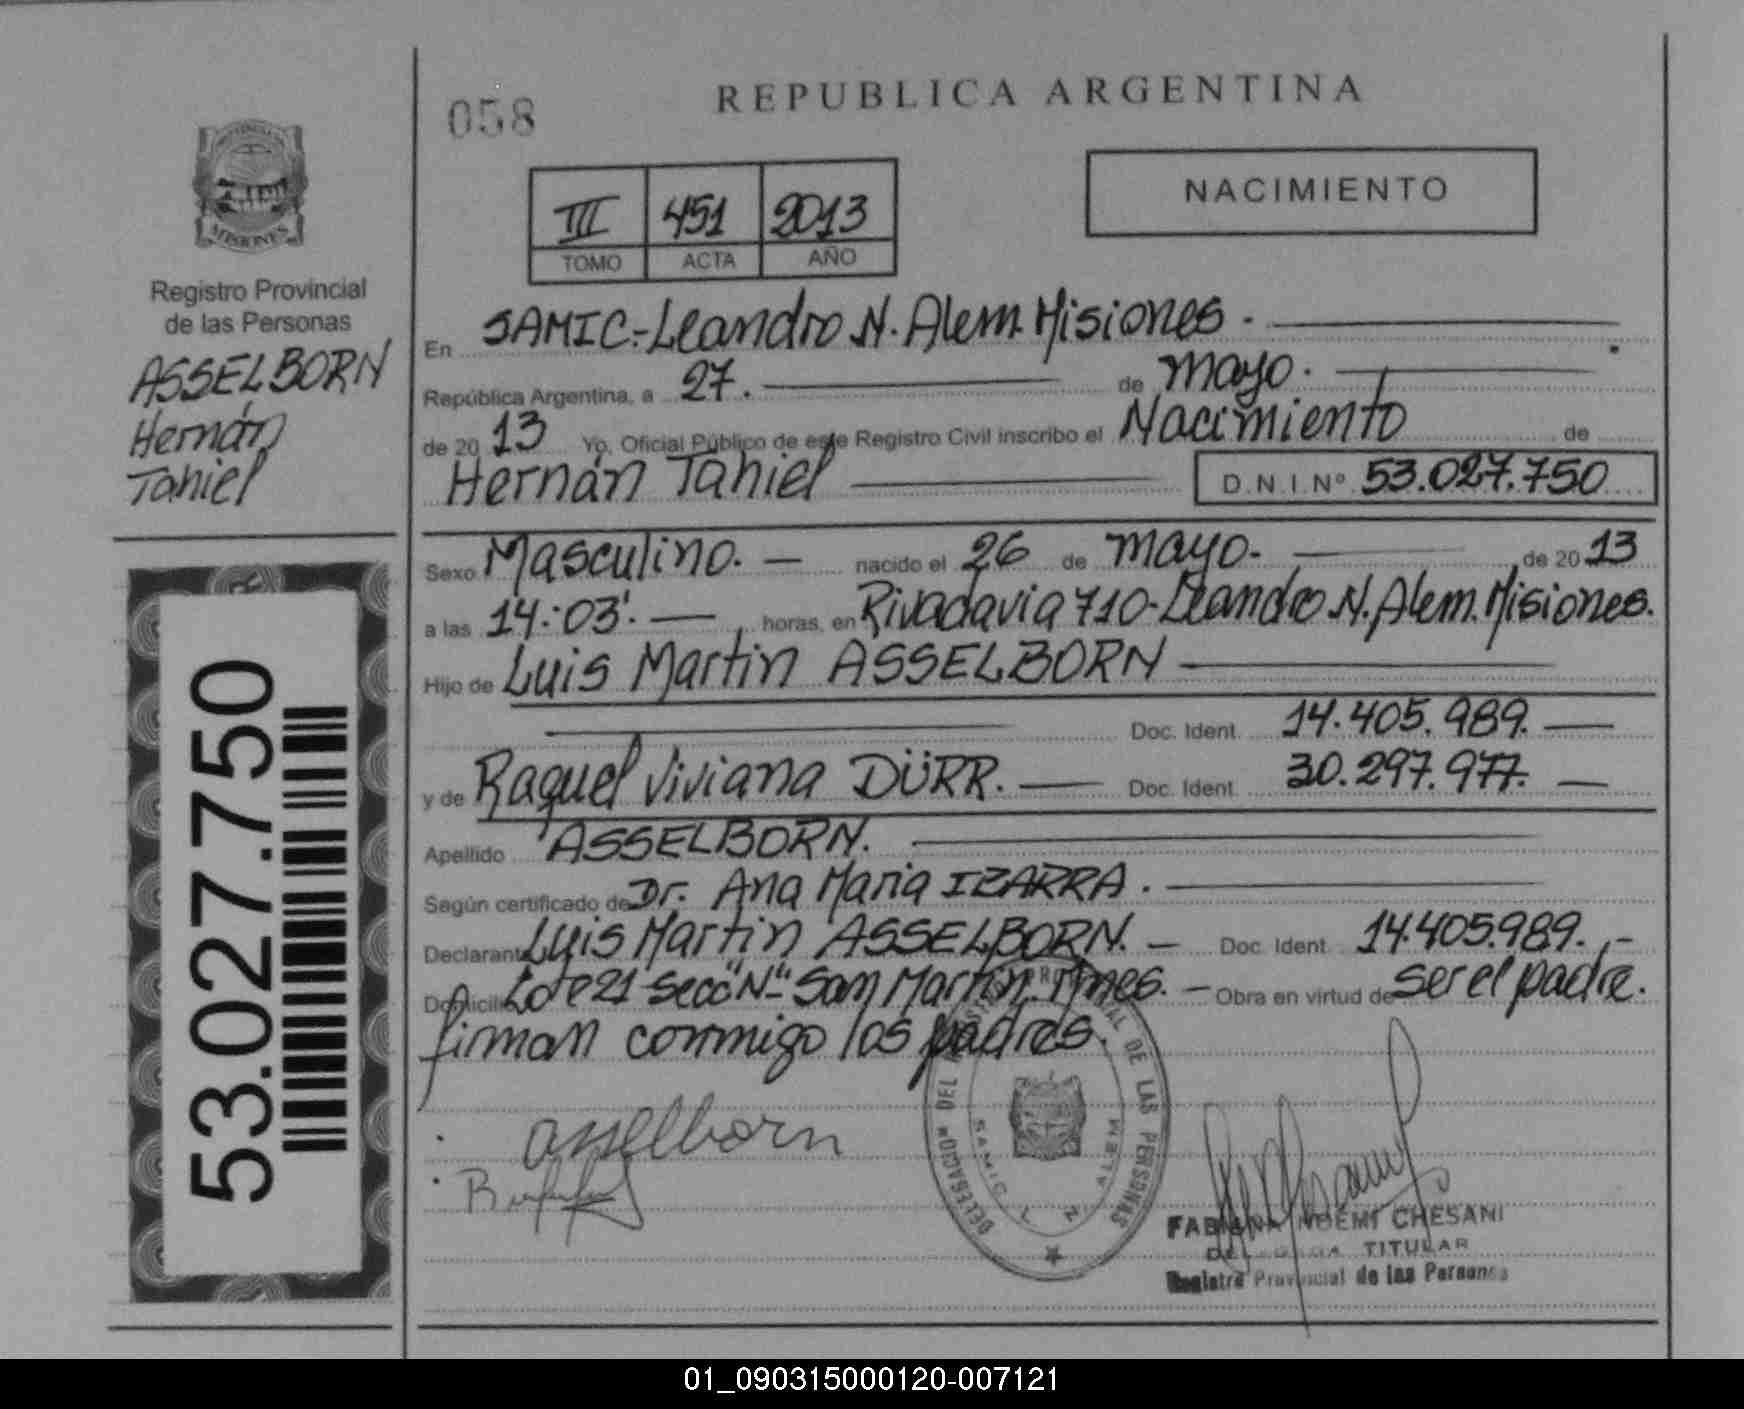 058
REPUBLICA ARGENTINA
NACIMIENTO
III 451 2013
TOMO ACTA AÑO
MISIONES
Registro Provincial
de las Personas
ASSELBORN
Hernán
Tahiel
53.027.750
En SAMIC.-Leandro N. Alem. Misiones.
República Argentina, a 27. de mayo.
de 20 13 Yo, Oficial Público de este Registro Civil inscribo el Nacimiento de
Hernán Tahiel D.N.I.Nº 53.027.750
Sexo Masculino. nacido el 26 de mayo. de 20 13
a las 14:03'. horas, en Rivadavia 710-Leandro N. Alem. Misiones.
Hijo de Luis Martin ASSELBORN
Doc. Ident. 14.405.989.
y de Raquel Viviana DÜRR. Doc. Ident. 30.297.977.
Apellido ASSELBORN.
Según certificado de Dr. Ana Maria IZARRA.
Declarante Luis Martin ASSELBORN. Doc. Ident. 14.405.989.
Domicilio Lote 21 Secc "N" San Martin. Mnes. Obra en virtud de ser el padre.
firman conmigo los padres.
asselborn
DELEGACION DEL REGISTRO PROVINCIAL DE LAS PERSONAS
SAMIC L N ALEM
FABIANA NOEMI CHESANI
DELEGADA TITULAR
Registro Provincial de las Personas
01_090315000120-007121